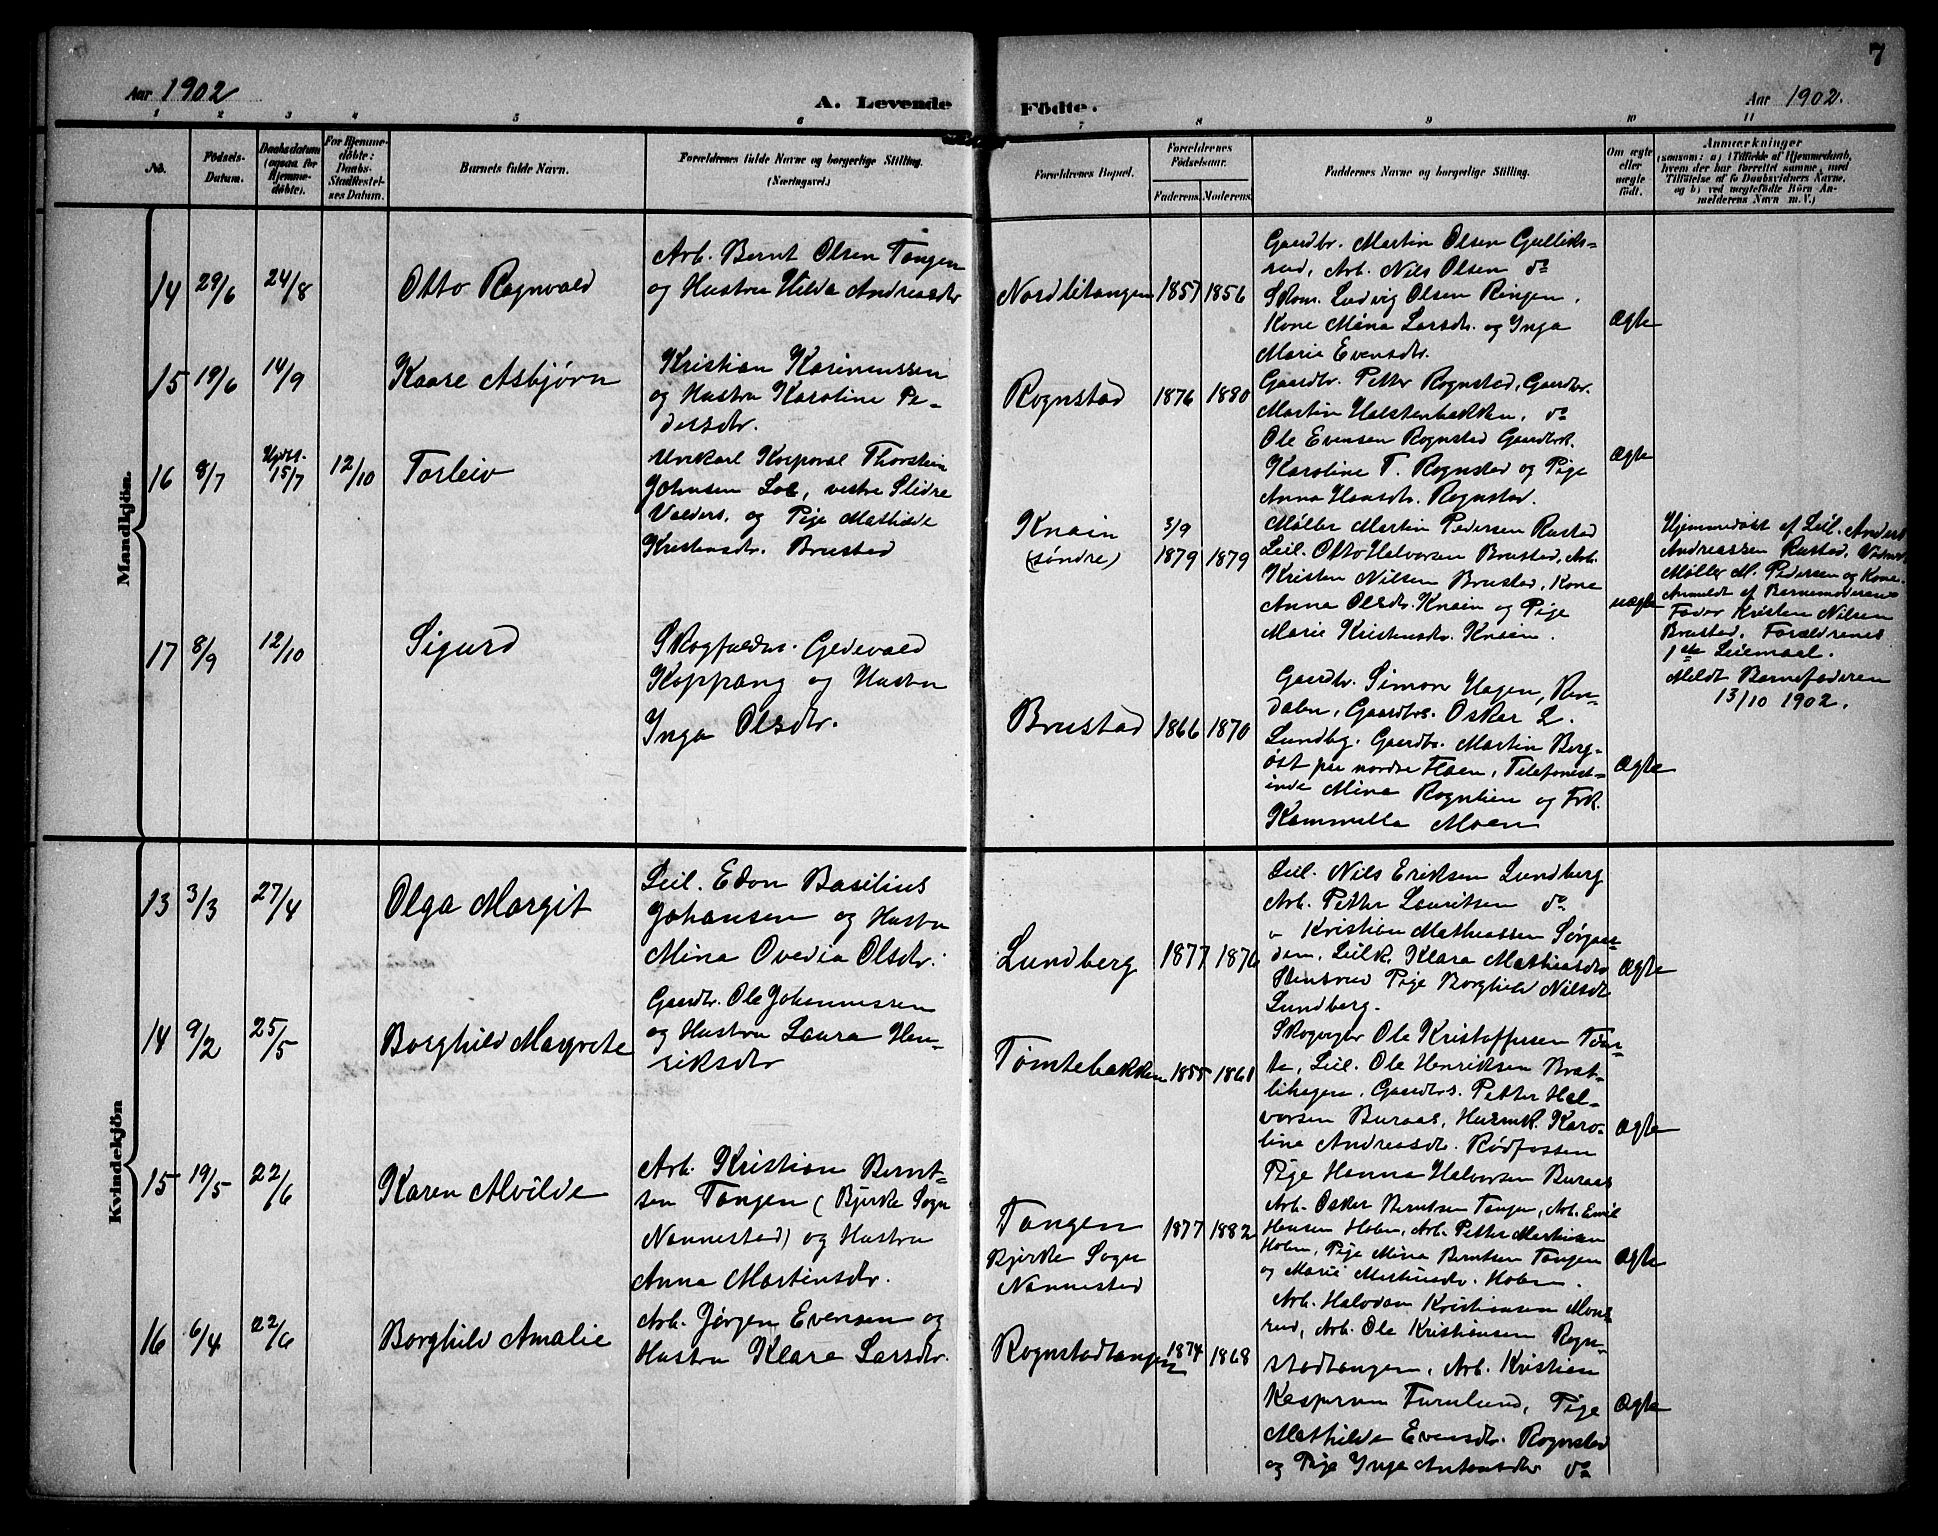 7
Aar 1902
A. Levende
Födte.
Aar 1902.
1 2 3 4 5 6 7 8 9 10 11
No.
Födsels-
Datum.
Daabsdatum
(ogsaa for
Hjemme-
döbte).
For Hjemme-
döbte:
Daabs-
Stadfæstel-
ses Datum.
Barnets fulde Navn.
Forældrenes fulde Navne og borgerlige Stilling.
(Næringsvei.)
Forældrenes Bopæl.
Forældrenes
Födselsaar.
Faderens. Moderens.
Faddernes Navne og borgerlige Stilling.
Om ægte
eller
uægte
födt.
Anmærkninger
(saasom: a) Tilfælde af Hjemmedaab,
hvem der har forrettet samme, med
Tilföielse af to Daabsvidners Navne,
og b) ved uægtefödte Börn An-
melderens Navn m. V.)
Mandkjön.
14 29/6 24/8
Otto Ragnvald
Arb. Bernt Olsen Tangen
og Hustru Hilda Andreasdtr
Nordlitangen 1857 1856
Gaardbr. Martin Olsen Gulliks-
rud, Arb. Nils Olsen do
Skom. Ludvig Olsen Ringen,
Kone Mina Larsdtr. og Inga
Marie Evensdtr.
Ægte
15 19/6 14/9
Kaare Asbjørn
Kristian Rasmussen
og Hustru Karoline Pe-
dersdtr.
Rognstad 1876 1880
Gaardbr. Petter Rognstad, Gaardbr.
Martin Halstenbakken, do
Ole Evensen Rognstad Gaardbrk.
Karoline T. Rognstad og Pige
Anna Hansdtr. Rognstad.
Ægte
16 8/7 Hjdbt. 15/7 12/10
Torleiv
Ungkarl Korporal Thorstein
Johnsen Loe, vestre Slidre
Valders, og Pige Mathilde
Kristensdtr. Brustad
Knain
(søndre)
3/9
1879 1879
Møller Martin Pedersen Rustad
Leil. Otto Halvorsen Brustad, Arb.
Kristen Nilsen Brustad, Kone
Anna Olsdtr. Knain og Pige
Marie Kristensdtr. Knain.
uægte
Hjemmedøbt af Leil. Anders
Andreassen Rustad. Vidner
Møller M. Pedersen og Kone.
Anmeldt af Barnemoderens
Fader Kristen Nilsen
Brustad. Forældrenes
1ste Leiemaal.
Meldt Barnefaderen
13/10 1902.
17 8/9 12/10
Sigurd
Skogfuldm. Gedevald
Koppang og Hustru
Inga Olsdtr.
Brustad 1866 1870
Gaardbr. Simon Hagen, Ren-
dalen, Gaardbrs. Oskar L.
Lundby. Gaardbr. Martin Berg-
øst paa nordre Hoen, Telefonist-
inde Mina Rognlien og Frk.
Kammilla Moen
Ægte
Kvindekjön
13 3/3 27/4
Olga Margit
Leil. Edon Basilius
Johansen og Hustru
Mina Ovedia Olsdtr.
Lundberg 1877 1876
Leil. Nils Eriksen Lundberg
Arb. Petter Lauritsen do
" Kristian Mathiassen Sørgaar-
den, Leilk. Klara Mathiasdtr
Stensrud Pige Borghild Nilsdtr
Lundberg.
Ægte
14 9/2 25/5
Borghild Margrete
Gaardbr. Ole Johannessen
og Hustru Laura Hen-
riksdtr
Tømtebakken 1855 1861
Skogvogter Ole Kristoffersen Tøm-
te, Leil. Ole Henriksen Bræt-
lihagen, Gaardbrs. Petter Hal-
vorsen Buraas, Husmk. Karo-
lina Andreasdtr. Rødfossen
Pige Hanna Halvorsen Buraas
Ægte
15 19/5 22/6
Karen Alvilde
Arb. Kristian Bernt-
sen Tangen (Bjerke Sogn
Nannestad) og Hustru
Anna Martinsdtr.
Tangen
Bjerke Sogn
Nannestad
1877 1882
Arb. Oskar Berntsen Tangen, Arb. Emil
Hansen Holm, Arb. Petter Martinsen
Holm, Pige Mina Berntsen Tangen
og Marie Martinsdtr. Holm.
Ægte
16 6/4 22/6
Borghild Amalie
Arb. Jørgen Evensen og
Hustru Klara Larsdtr.
Rognstadtangen 1874 1868
Arb. Halvdan Kristiansen Mons-
rud, Arb. Ole Kristiansen Rogn-
stadtangen, Arb. Kristian
Kaspersen Furulund, Pige
Mathilde Evensdtr. Rognstad
og Pige Inga Antonsdtr do
Ægte